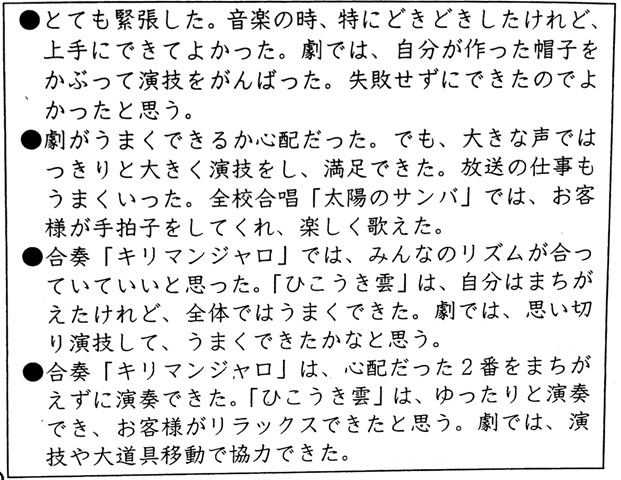 ●とても緊張した。音楽の時、特にどきどきしたけれど、
上手にできてよかった。劇では、自分が作った帽子を
かぶって演技をがんばった。失敗せずにできたのでよ
かったと思う。
●劇がうまくできるか心配だった。でも、大きな声では
っきりと大きく演技をし、満足できた。放送の仕事も
うまくいった。全校合唱「太陽のサンバ」では、お客
様が手拍子をしてくれ、楽しく歌えた。
●合奏「キリマンジャロ」では、みんなのリズムが合っ
ていていいと思った。「ひこうき雲」は、自分はまちが
えたけれど、全体ではうまくできた。劇では、思い切
り演技して、うまくできたかなと思う。
●合奏「キリマンジャロ」は、心配だった2番をまちが
えずに演奏できた。「ひこうき雲」は、ゆったりと演奏
でき、お客様がリラックスできたと思う。劇では、演
技や大道具移動で協力できた。